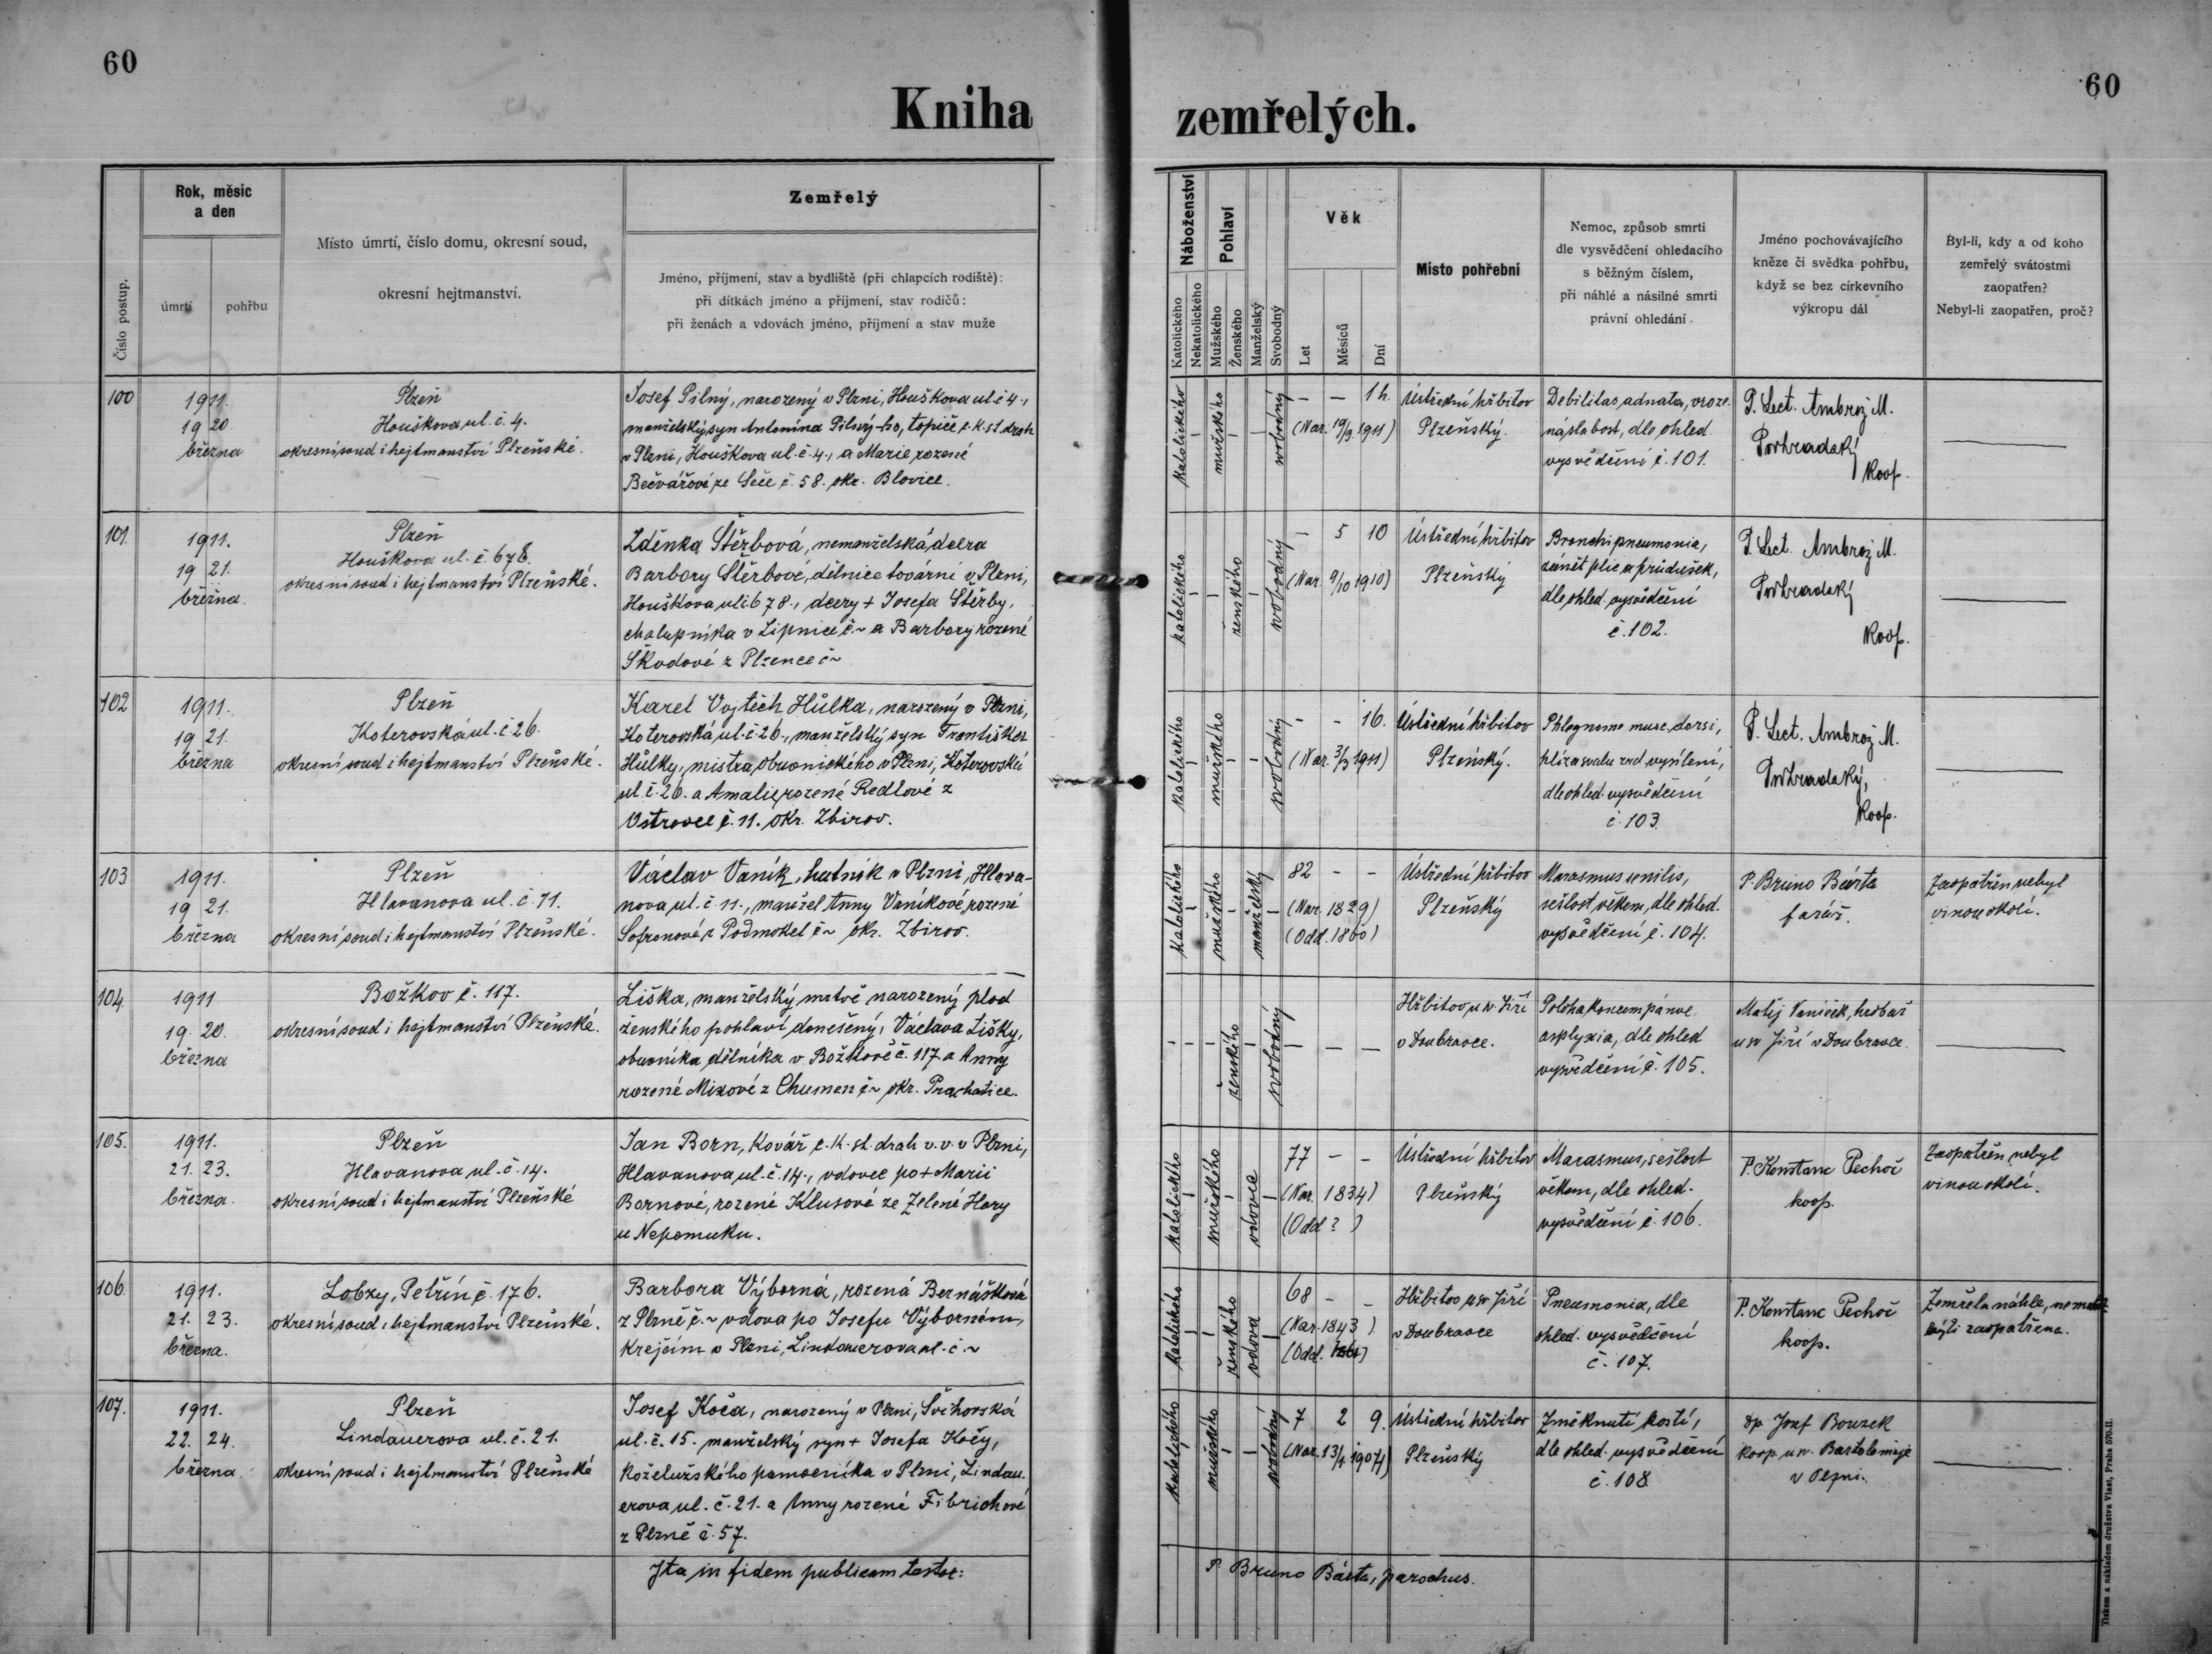 60
60
Kniha zemřelých.
Číslo postup.
Rok, měsíc
a den
úmrtí
pohřbu
Místo úmrtí, číslo domu, okresní soud,
okresní hejtmanství.
Zemřelý
Jméno, příjmení, stav a bydliště (při chlapcích rodiště):
při dítkách jméno a příjmení, stav rodičů:
při ženách a vdovách jméno, příjmení a stav muže
Náboženství
Katolického
Nekatolického
Pohlaví
Mužského
Ženského
Manželský
Svobodný
Věk
Let
Měsíců
Dní
Místo pohřební
Nemoc, způsob smrti
dle vysvědčení ohledacího
s běžným číslem,
při náhlé a násilné smrti
právní ohledání.
Jméno pochovávajícího
kněze či svědka pohřbu,
když se bez církevního
výkropu dál
Byl-li, kdy a od koho
zemřelý svátostmi
zaopatřen?
Nebyl-li zaopatřen, proč?
100
1911.
19 20
března
Plzeň
Houškova ul. č. 4.
okresní soud i hejtmanství Plzeňské.
Josef Pilný, narozený v Plzni, Houškova ul. č 4.,
manželský syn Antonína Pilný-ho, topiče c. k. st. drah
v Plzni, Houškova ul. č. 4., a Marie rozené
Bečvářové ze Seče č. 58. okr. Blovice.
katolického
mužského
svobodný
— — 1 h.
(Nar. 19/3. 1911)
Ústřední hřbitov
Plzeňský.
Debilitas adnata, vroze-
ná slabost, dle ohled.
vysvědčení č. 101.
P. Lect. Ambrož M.
Podhradský
koop.
101.
1911.
19 21.
března.
Plzeň
Houškova ul. č 678.
okresní soud i hejtmanství Plzeňské.
Zděnka Štěrbová, nemanželská dcera
Barbory Štěrbové, dělnice tovární v Plzni,
Houškova ul. č 678., dcery + Josefa Štěrby,
chalupníka v Lipnici č. ~ a Barbory rozené
Škodové z Plzence č ~
katolického
ženského
svobodný
— 5 10
(Nar. 9/10 1910)
Ústřední hřbitov
Plzeňský
Bronchipneumonia,
zánět plic a průdušek,
dle ohled. vysvědčení
č. 102.
P. Lect. Ambrož M.
Podhradský
koop.
102
1911.
19 21.
března
Plzeň
Koterovská ul. č 26.
okresní soud i hejtmanství Plzeňské.
Karel Vojtěch Hůlka, narozený v Plzni,
Koterovská ul. č. 26., manželský syn Františka
Hůlky, mistra obuvnického v Plzni, Koterovská
ul. č. 26. a Amalie, rozené Redlové z
Ostrovce č. 11. okr. Zbirov.
katolického
mužského
svobodný
- - 16.
(Nar. 3/3 1911)
Ústřední hřbitov
Plzeňský.
Phlegnome musc. dorsi,
hlíza svalu zad vysílení,
dle ohled. vysvědčení
č. 103.
P. Lect. Ambrož M.
Podhradský,
koop.
103
1911.
19 21.
března
Plzeň
Hlavanova ul. č. 11.
okresní soud i hejtmanství Plzeňské.
Václav Vaník, hutník v Plzni, Hlava-
nova ul. č 11., manžel Anny Vaníkové, rozené
Sofronové z Podmokel č ~ okr. Zbirov.
katolického
mužského
manželský
82 - -
(Nar. 1829)
(Odd. 1860)
Ústřední hřbitov
Plzeňský
Marasmus senilis,
sešlost věkem, dle ohled.
vysvědčení č. 104.
P. Bruno Bárta
farář.
Zaopatřen nebyl
vinou okolí.
104.
1911
19. 20.
března
Božkov č. 117.
okresní soud i hejtmanství Plzeňské.
Liška, manželský mrtvě narozený plod
ženského pohlaví donešený, Václava Lišky,
obuvníka dělníka v Božkově č. 117 a Anny
rozené Mixové z Chumen č ~ okr. Prachatice.
ženského
svobodný
— — —
Hřbitov u sv. Jiří
v Doubravce.
Poloha koncem pánve
asphyxia, dle ohled
vysvědčení č. 105.
Matěj Vaníček, hrobař
u sv Jiří v Doubravce.
105.
1911.
21. 23.
března.
Plzeň
Hlavanova ul. č. 14.
okresní soud i hejtmanství Plzeňské
Jan Born, kovář c. k. st. drah v. v. v Plzni,
Hlavanova ul. č. 14., vdovec po + Marii
Bornové, rozené Klusové ze Zelené Hory
u Nepomuku.
katolického
mužského
vdovce
77 - -
(Nar. 1834)
(Odd ? )
Ústřední hřbitov
Plzeňský
Marasmus, sešlost
věkem, dle ohled.
vysvědčení č. 106.
P. Konstanc Pechoč
koop.
Zaopatřen nebyl
vinou okolí.
106.
1911.
21. 23.
března.
Lobzy, Petřín č. 176.
okresní soud i hejtmanství Plzeňské.
Barbora Výborná, rozená Bernášková
z Plzně č. ~ vdova po Josefu Výborném,
krejčím v Plzni, Lindauerova ul. č. ~
katolického
ženského
vdova
68 - -
(Nar. 1843)
(Odd. )
Hřbitov u sv Jiří
v Doubravce
Pneumonia, dle
ohled. vysvědčení
č. 107.
P. Konstanc Pechoč
koop.
Zemřela náhle, nemohla
býti zaopatřena.
107.
1911.
22. 24.
března
Plzeň
Lindauerova ul. č. 21.
okresní soud i hejtmanství Plzeňské
Josef Koča, narozený v Plzni, Švihovská
ul. č. 15. manželský syn + Josefa Koči,
koželužského pomocníka v Plzni, Lindau-
erova ul. č. 21. a Anny rozené Fibrichové
z Plzně č. 57.
katolického
mužského
svobodný
7 2 9.
(Nar. 13/1 1904)
Ústřední hřbitov
Plzeňský
Změknutí kostí,
dle ohled. vysvědčení
č. 108
dp Josef Bouzek
koop. u sv. Bartoloměje
v Plzni.
Ita in fidem publicam testor:
P. Bruno Bárta, parochus.
Tiskem a nákladem družstva Vlast, Praha 570-II.